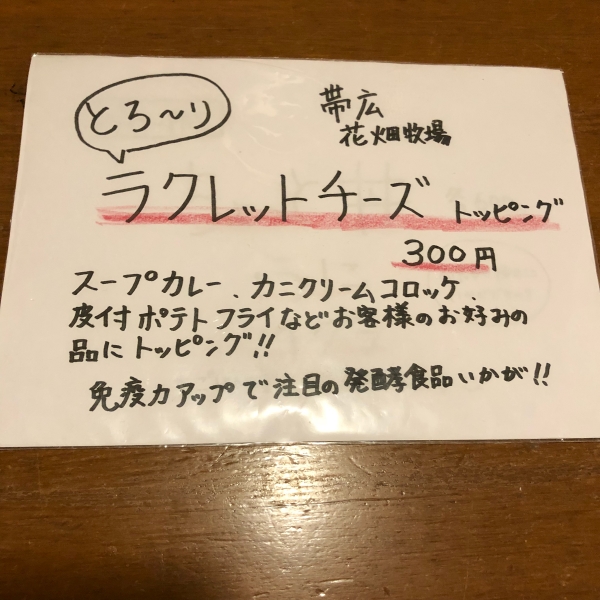 とろ〜り
帯広
花畑牧場
ラクレットチーズ トッピング
300円
スープカレー、カニクリームコロッケ、
皮付ポテトフライなどお客様のお好みの
品にトッピング!!
免疫力アップで注目の発酵食品いかが!!